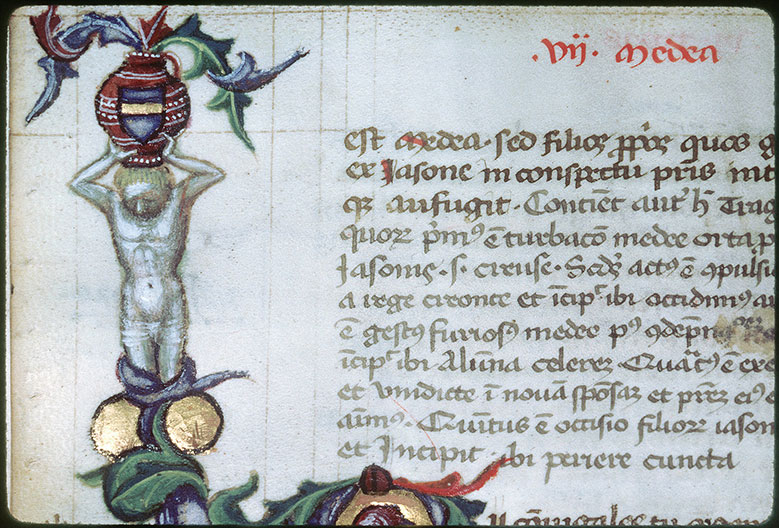 .vij. Medea
est Medea. sed filios ꝓprios quos g
ex Jasone in conspectu pr̄is int
qꝫ aufugit. Contiēt aut᷒ h̄ Trag
quoꝝ pꝰmꝰ ē turbacō medee orta p
Jasonis. s. creuse. Scd̓s actꝰ ē ꝯpulsi
a rege creonte et īcipit ibi occidimꝰ au
ē gestꝰ furiosꝰ medee pꝰ
īcipit ibi Alūna celereꝫ. Quartꝰ ē exe
et vindicte ī nouā sponsaꝫ et pr̄eꝫ eiꝰ
Quintus ē occisio filioꝝ iason
et Incipit. ibi periere cuncta